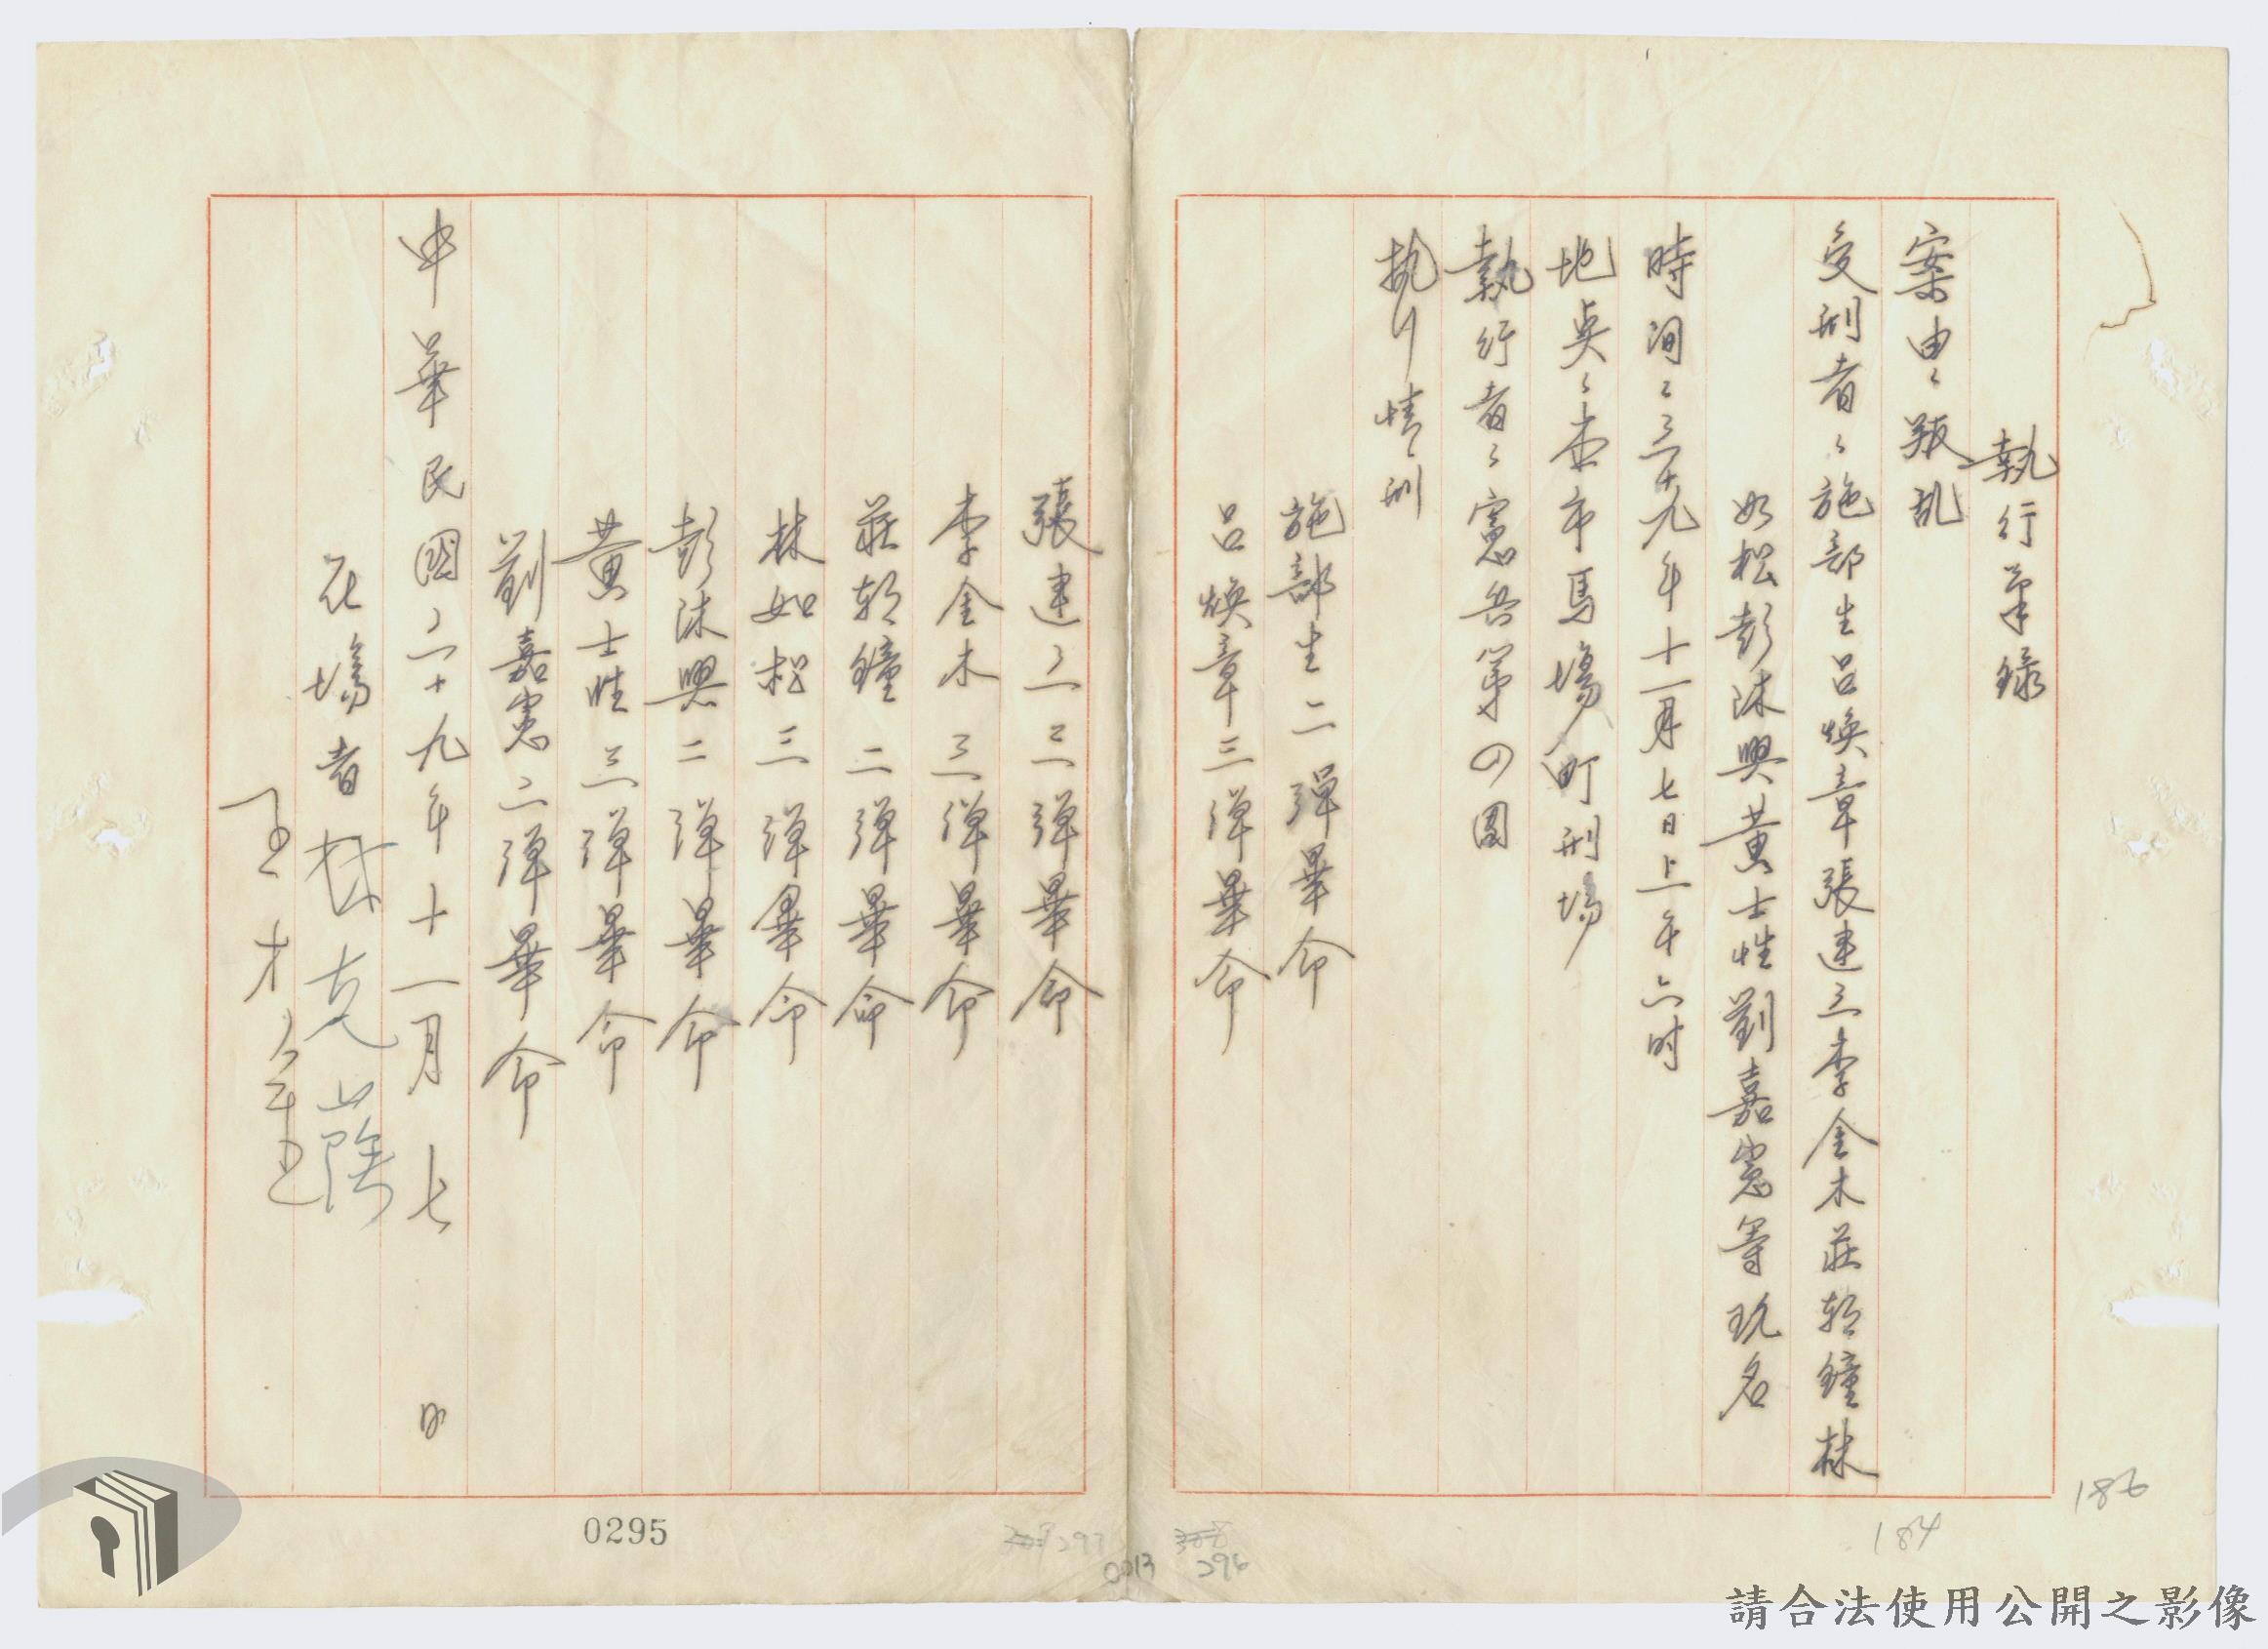 執行筆錄
案由：叛乱
受刑者：施部生呂煥章張建三李金木莊朝鐘林
如松彭沐興黃士性劉嘉憲等玖名
時間：三十九年十一月七日上午六时
地奌：本市馬場町刑場
執行者：憲兵第四團
执行情形
施部生二弹畢命
呂煥章三弹畢命
張建三三弹畢命
李金木三弹畢命
莊朝鐘二弹畢命
林如松三弹畢命
彭沐興二弹畢命
黃士性三弹畢命
劉嘉憲二弹畢命
中華民國三十九年十一月七日
在場者
0295
297
0013
296
184
186
請合法使用公開之影像